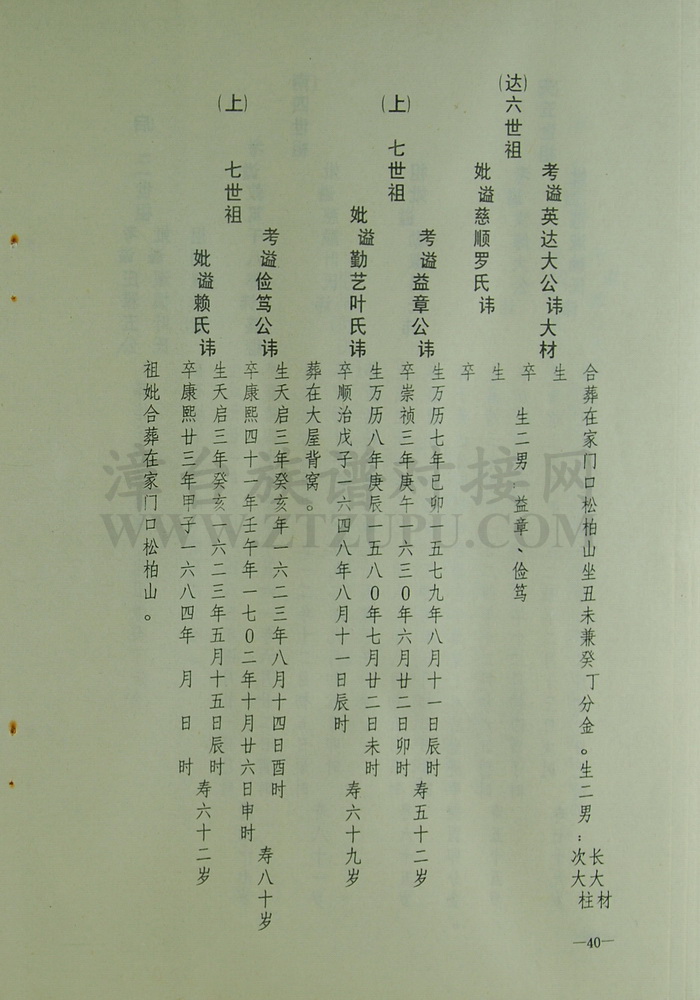 合葬在家门口松柏山坐丑未兼癸丁分金。生二男：长大材
次大柱
考谥英达大公讳大材 生
卒 生二男：益章、俭笃
(达)六世祖
妣谥慈顺罗氏讳 生
卒
考谥益章公讳 生万历七年己卯一五七九年八月十一日辰时
卒崇祯三年庚午一六三0年六月廿二日卯时 寿五十二岁
(上) 七世祖
妣谥勤艺叶氏讳 生万历八年庚辰一五八0年七月廿二日未时
卒顺治戊子一六四八年八月十一日辰时 寿六十九岁
葬在大屋背窝。
考谥俭笃公讳 生天启三年癸亥年一六二三年八月十四日酉时
卒康熙四十一年壬午年一七0二年十月廿六日申时 寿八十岁
(上) 七世祖
妣谥赖氏讳 生天启三年癸亥一六二三年五月十五日辰时
卒康熙廿三年甲子一六八四年 月 日 时 寿六十二岁
祖妣合葬在家门口松柏山。
—40—
漳台族谱对接网
WWW.ZTZUPU.COM